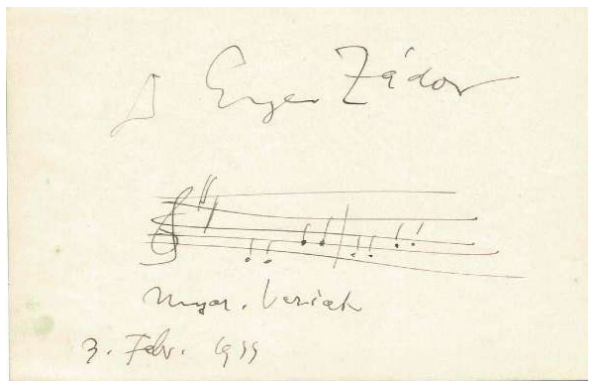 Eugen Zádor
Ungar. Variat
3. Febr.